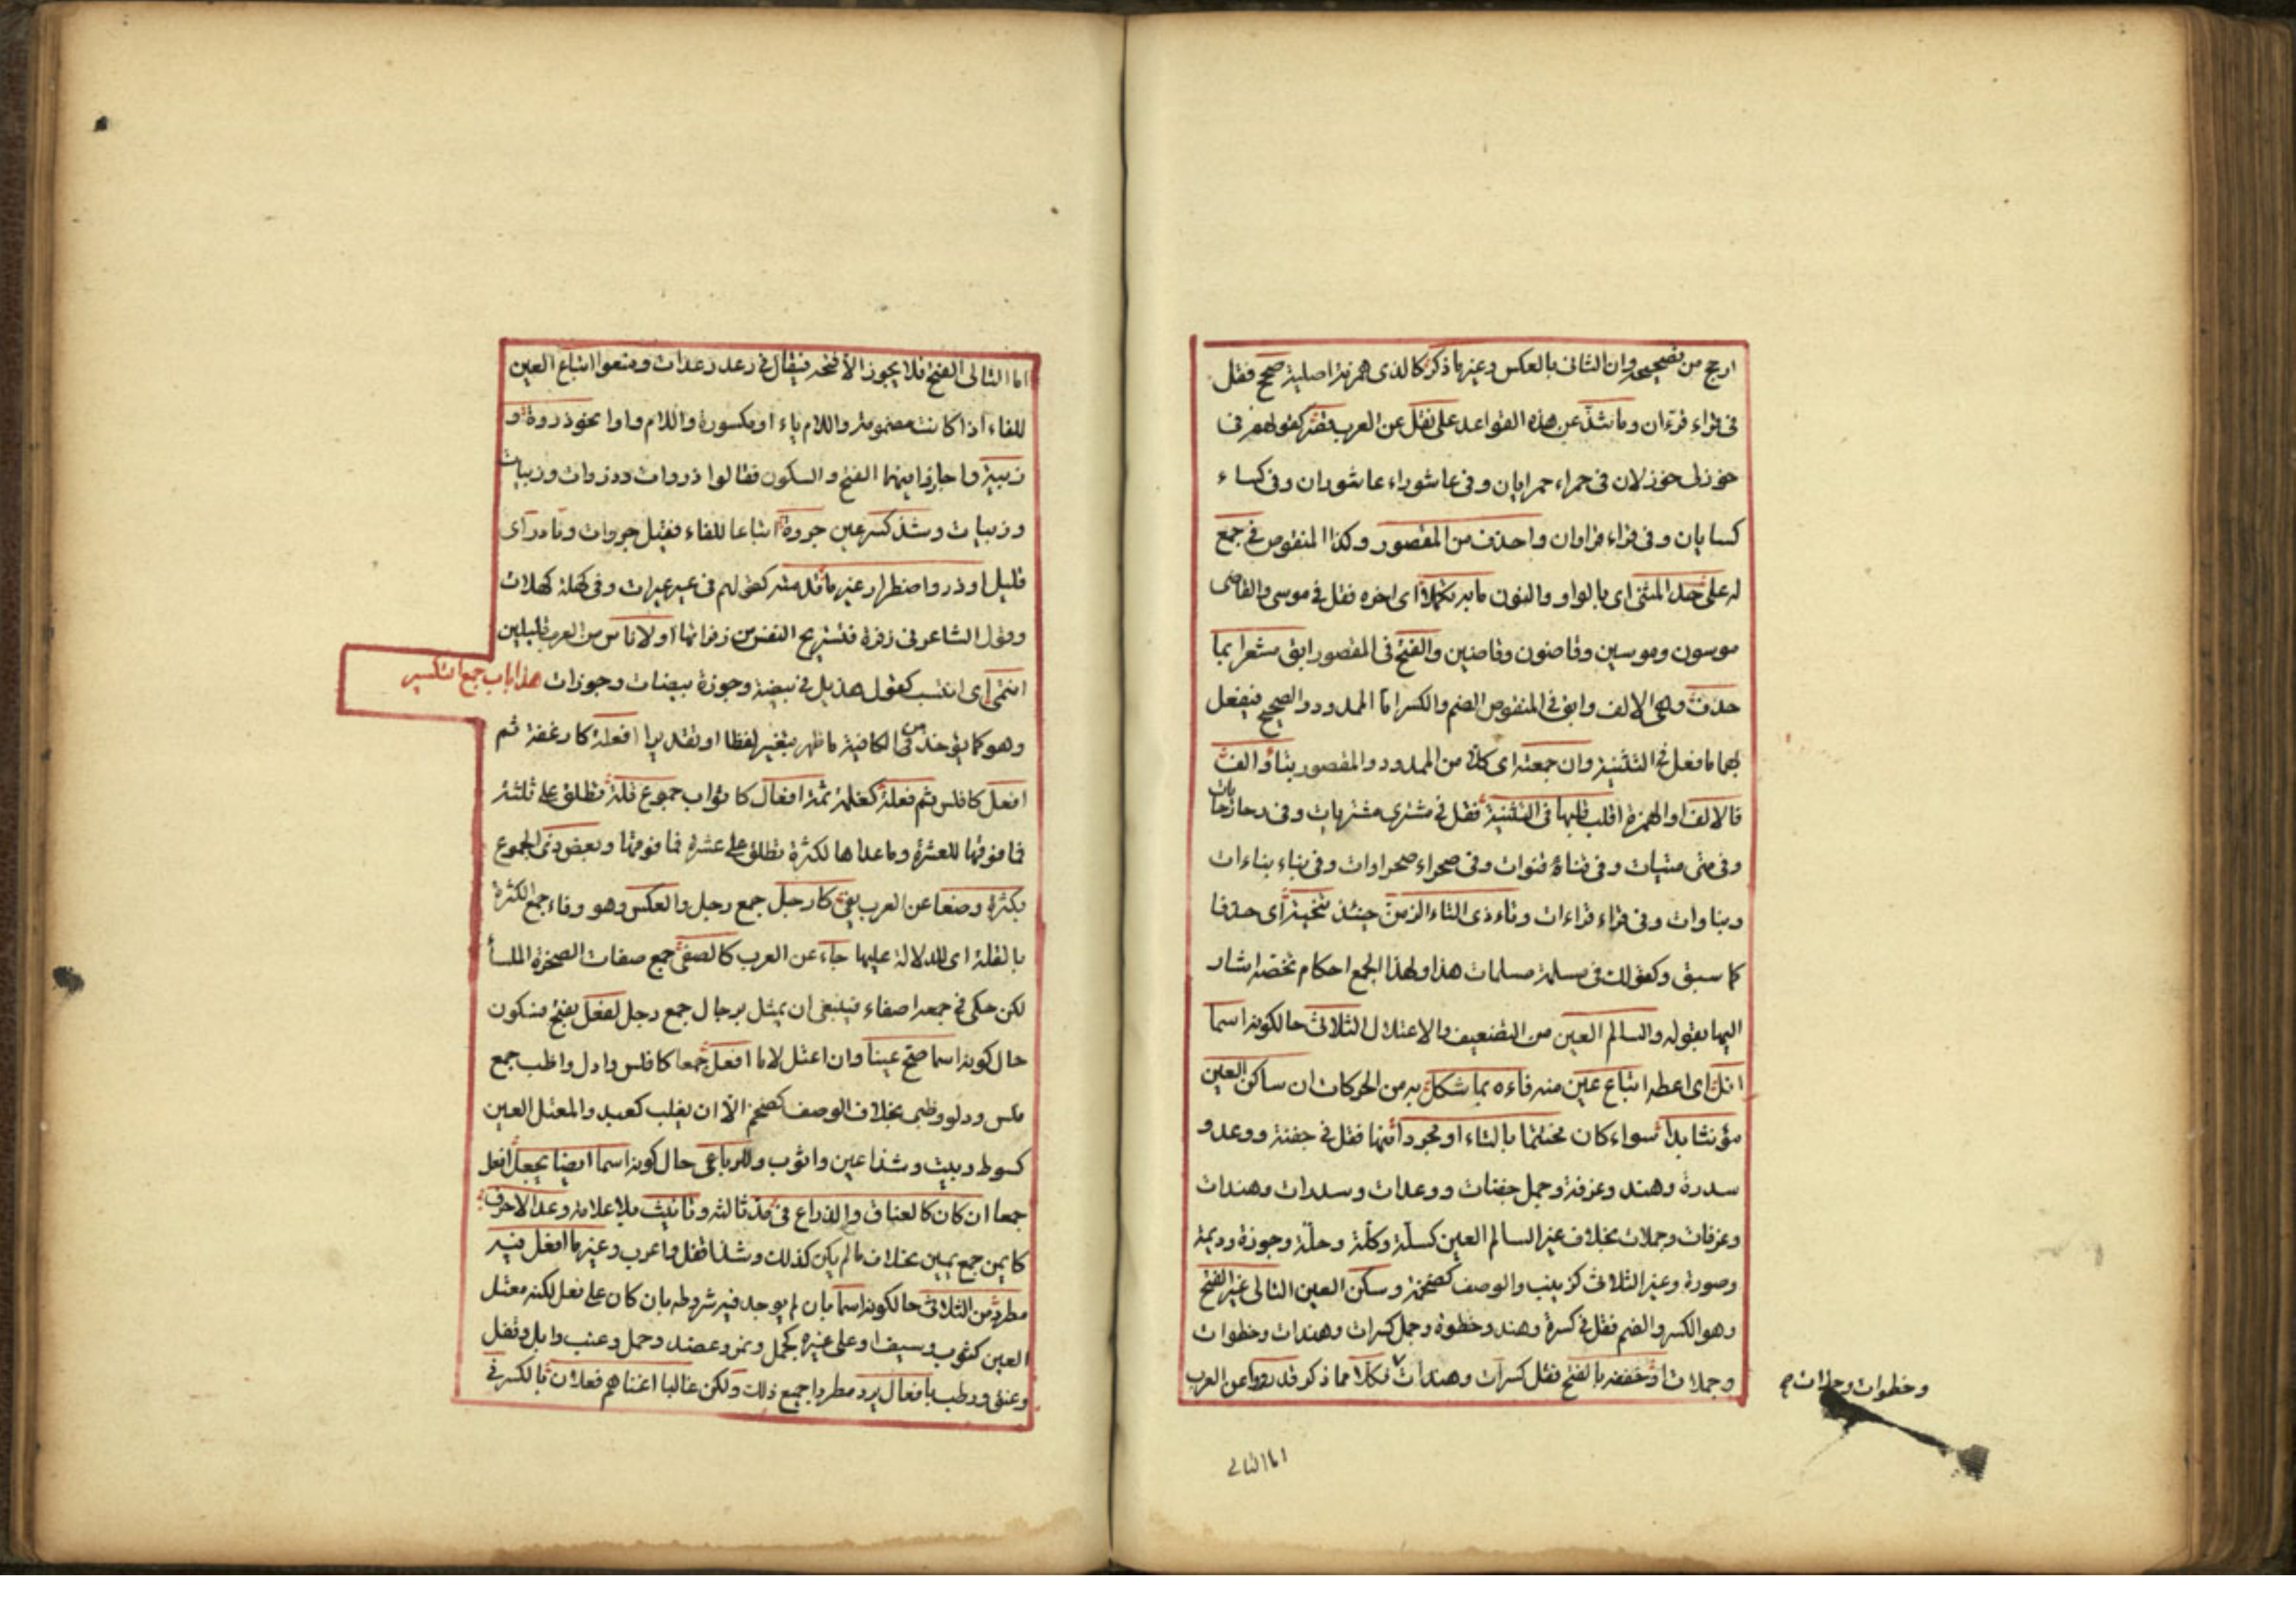 ارجح من تصحيحه وان الثانى بالعكس وغير ما ذكر كالذى همزته اصلية صحح فقل
فى قراء قرءان وما شذ عن هذه القواعد على نقل عن العرب قصر كقولهم فى
خوزلى خوزلان فى حمراء حمرايان وفى عاشوراء عاشوران وفى كساء
كسايان وفى قراء قراوان واحذف من المقصور وكذا المنقوص فى جمع
له على حد المثنى اى بالواو والنون ما به تكملا اى اخره فقل فى موسى والقاضى
موسون وموسين وقاضون وقاضين والفتح فى المقصور ابق مشعرا بما
حذف وهى الالف وابق فى المنقوص الضم والكسر اما الممدود والصحيح فيفعل
بهما ما فعل فى التثنية وان جمعته اى كلا من الممدود والمقصور بتاء والف
فالالف او الهمزة اقلب قلبها فى التثنية فقل فى مشترى مشتريات وفى رحا رحيات
وفى متى متيات وفى قناة قنوات وفى صحراء صحراوات وفى بناء بناءات
وبناوات وفى قراء قراءات وتاء ذى التاء الزمن حينئذ تنحية اى حذفا
كما سبق وكقولك فى مسلمة مسلمات هذا ولهذا الجمع احكام تخصه اشار
اليها بقوله والسالم العين من التضعيف والاعتلال الثلاثى حال كونه اسما
انل اى اعطه اتباع عين منه فاءه بما شكل به من الحركات ان ساكن العين
مؤنثا بدا سواء كان مختتما بالتاء او مجردا منها فقل فى جفنة ووعد و
سدرة وهند وغرفة وجمل جفنات ووعدات وسدرات وهندات
وغرفات وجملات بخلاف غير السالم العين كسلة وكلة وحلة وجوزة وديمة
وصورة وغير الثلاثى كزينب والوصف كضخمة وسكن العين التالى غير الفتح
وهو الكسر والضم فقل فى كسرة وهند وخطوة وجمل كسرات وهندات وخطوات
وجملات او خففه بالفتح فقل كسرات وهندات فكلا مما ذكر قد رووا عن العرب
وخطوات وجملات صح
اما التالى
اما التالى الفتح فلا يجوز الا فتحه فيقال فى دعد دعدات ومنعوا اتباع العين
للفاء اذا كانت مضمومة واللام ياء او مكسورة واللام واوا نحو ذروة و
زبية واجازوا فيهما الفتح والسكون فقالوا ذروات وذروات وزبيات
وزبيات وشذ كسر عين جروة اتباعا للفاء فقيل جروات ونادر اى
قليل او ذو اضطرار غير ما قدمته كقولهم فى عير عيرات وفى كهلة كهلات
وقول الشاعر فى زفرة فتستريح النفس من زفراتها او لاناس من العرب قليلين
انتمى اى انتسب كقول هذيل فى بيضة وجوزة بيضات وجوزات هذا باب جمع التكسير
وهو كما يؤخذ من الكافية ما ظهر بتغير لفظا او تقديرا افعلة كارغفة ثم
افعل كافلس ثم فعلة كغلمة ثمة افعال كاثواب جموع قلة تطلق على ثلثة
فما فوقها للعشرة وما عداها لكثرة تطلق على عشرة فما فوقها وبعض ذى الجموع
بكثرة وضعا عن العرب يفى كارجل جمع رجل والعكس وهو وفاء جمع الكثرة
بالقلة اى للدلالة عليها جاء عن العرب كالصفى جمع صفات الصخرة الملسا
لكن حكى فى جمعه اصفاء فينبغى ان يمثل برجال جمع رجل لفعل بفتح فسكون
حال كونه اسما صح عينا وان اعتل لاما افعل جمعا كافلس وادل واظب جمع
فلس ودلو وظبى بخلاف الوصف كضخم الا ان يغلب كعبد والمعتل العين
كسوط وبيت وشذ اعين واثوب وللرباعى حال كونه اسما ايضا يجعل افعل
جمعا ان كان كالعناق والذراع فى مد ثالثه وتانيث بلا علامة وعد الاحرف
كايمن جمع يمين بخلاف ما لم يكن كذلك وشذ اقفل واغرب وغير ما افعل فيه
مطرد من الثلاثى حال كونه اسما بان لم يوجد فيه شروطه بان كان على فعل لكنه معتل
العين كثوب وسيف او على غيره كجمل ونمر وعضد وحمل وعنب وابل وقفل
وعنق ورطب بافعال يرد مطردا جميع ذلك ولكن غالبا اغناهم فعلان بالكسر فى